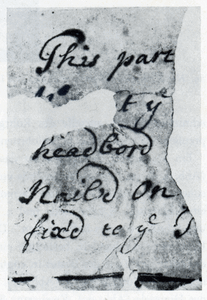 This part
t yᵉ
headbord
Nail'd On
fix'd to yᵉ